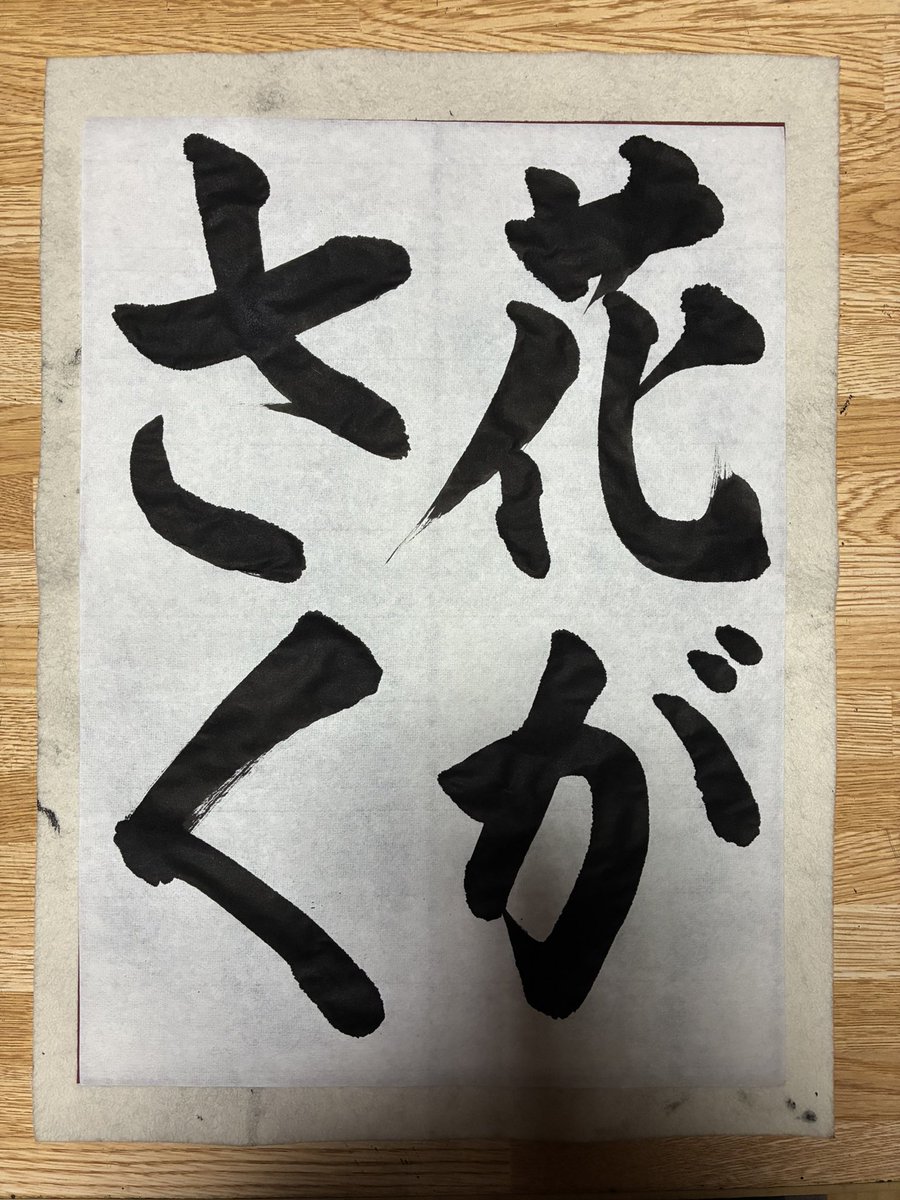 花が
さく